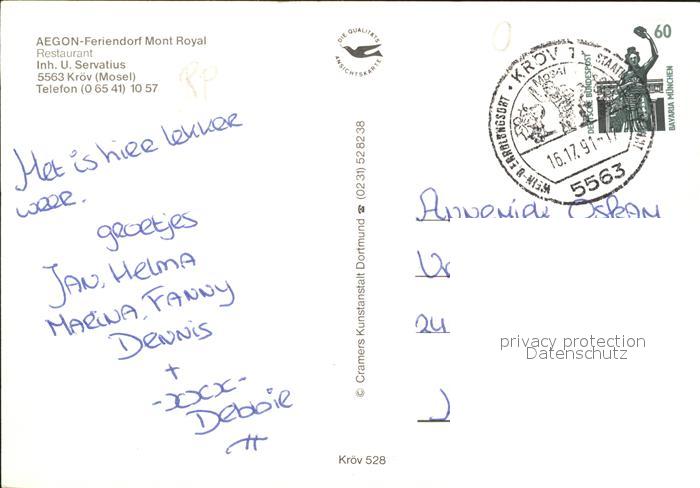 AEGON-Feriendorf Mont Royal
Restaurant
Inh. U. Servatius
5563 Kröv (Mosel)
Telefon (0 65 41) 10 57
Het is hier lekker
weer.
groetjes
Jan, Helma
Marina, Fanny
Dennis
+
-xxx-
Debbie
DIE QUALITÄTS
ANSICHTSKARTE
© Cramers Kunstanstalt Dortmund ☎ (0231) 52 82 38
Kröv 528
60
DEUTSCHE BUNDESPOST
BAVARIA MÜNCHEN
KRÖV 1
Mosel
STAATL
WEIN- U ERHOLUNGSORT
5563
Oskam
privacy protection
Datenschutz